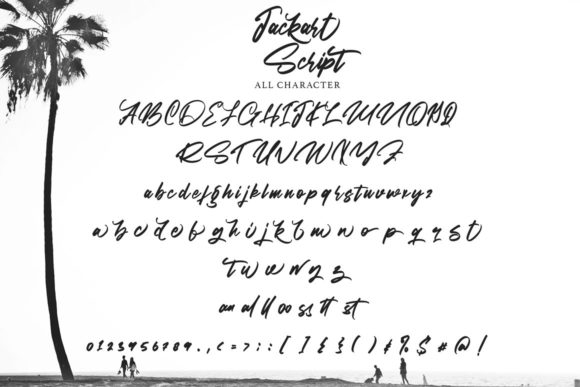 Jackart
Script
ALL CHARACTER
ABCDEFGHIJKLMNOPQ
RSTUVWXYZ
abcdefghijklmnopqrstuvwxyz
abcdefghijklmnopqrst
vwxyz
an al ll oo ss tt st
0123456789.,(=?::[]{}()*%$#@!